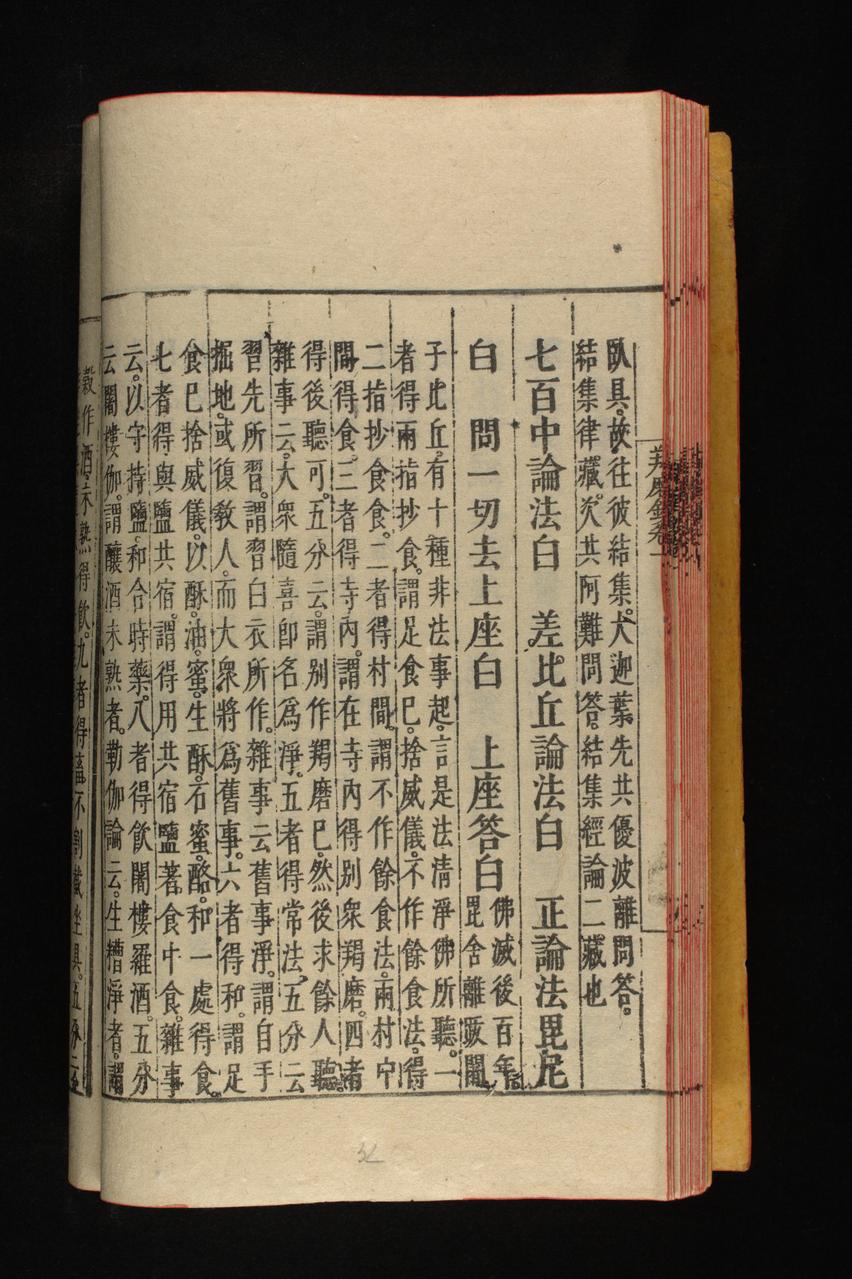 臥具。故往彼結集。大迦葉。先共優波離問答。
結集律藏。次共阿難問答。結集經論二藏也
七百中論法白　差比丘論法白　正論法毘尼
白　問一切去上座白　上座答白
佛滅後百年。
毘舍離䟦闍
子比丘。有十種非法事起。言是法清淨佛所聽。一
者得兩指抄食。謂足食已。捨威儀。不作餘食法。得
二指抄食食。二者得村間。謂不作餘食法。兩村中
間得食。三者得寺內。謂在寺內得別衆羯磨。四者
得後聽可。五分云。謂別作羯磨已。然後求餘人聽。
雜事云。大衆隨喜卽名爲淨。五者得常法。五分云
習先所習。謂習白衣所作。雜事云舊事淨。謂自手
掘地。或復教人。而大衆將爲舊事。六者得和。謂足
食已捨威儀。以酥。油。蜜。生酥。石蜜。酪。和一處得食。
七者得與鹽共宿。謂得用共宿鹽著食中食。雜事
云。以守持鹽和合時藥。八者得飲闍樓羅酒。五分
云闍樓伽。謂釀酒未熟者。勒伽論云。生糟淨者。謂
穀作酒。未熟得飲。九者得畜不割截坐具。五分云
羯磨鈔卷一